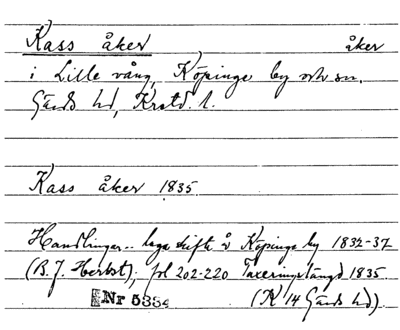 Kass åker åker
i Lille vång, Köpinge by och sn.
Gärds hd, Krstd. l.
Kass åker 1835
Handlingar.. laga skifte å Köpinge by 1832-37
(B. J. Herbst), fol 202-220 Taxeringslängd 1835
Nr 5334 (K 14 Gärds hd).